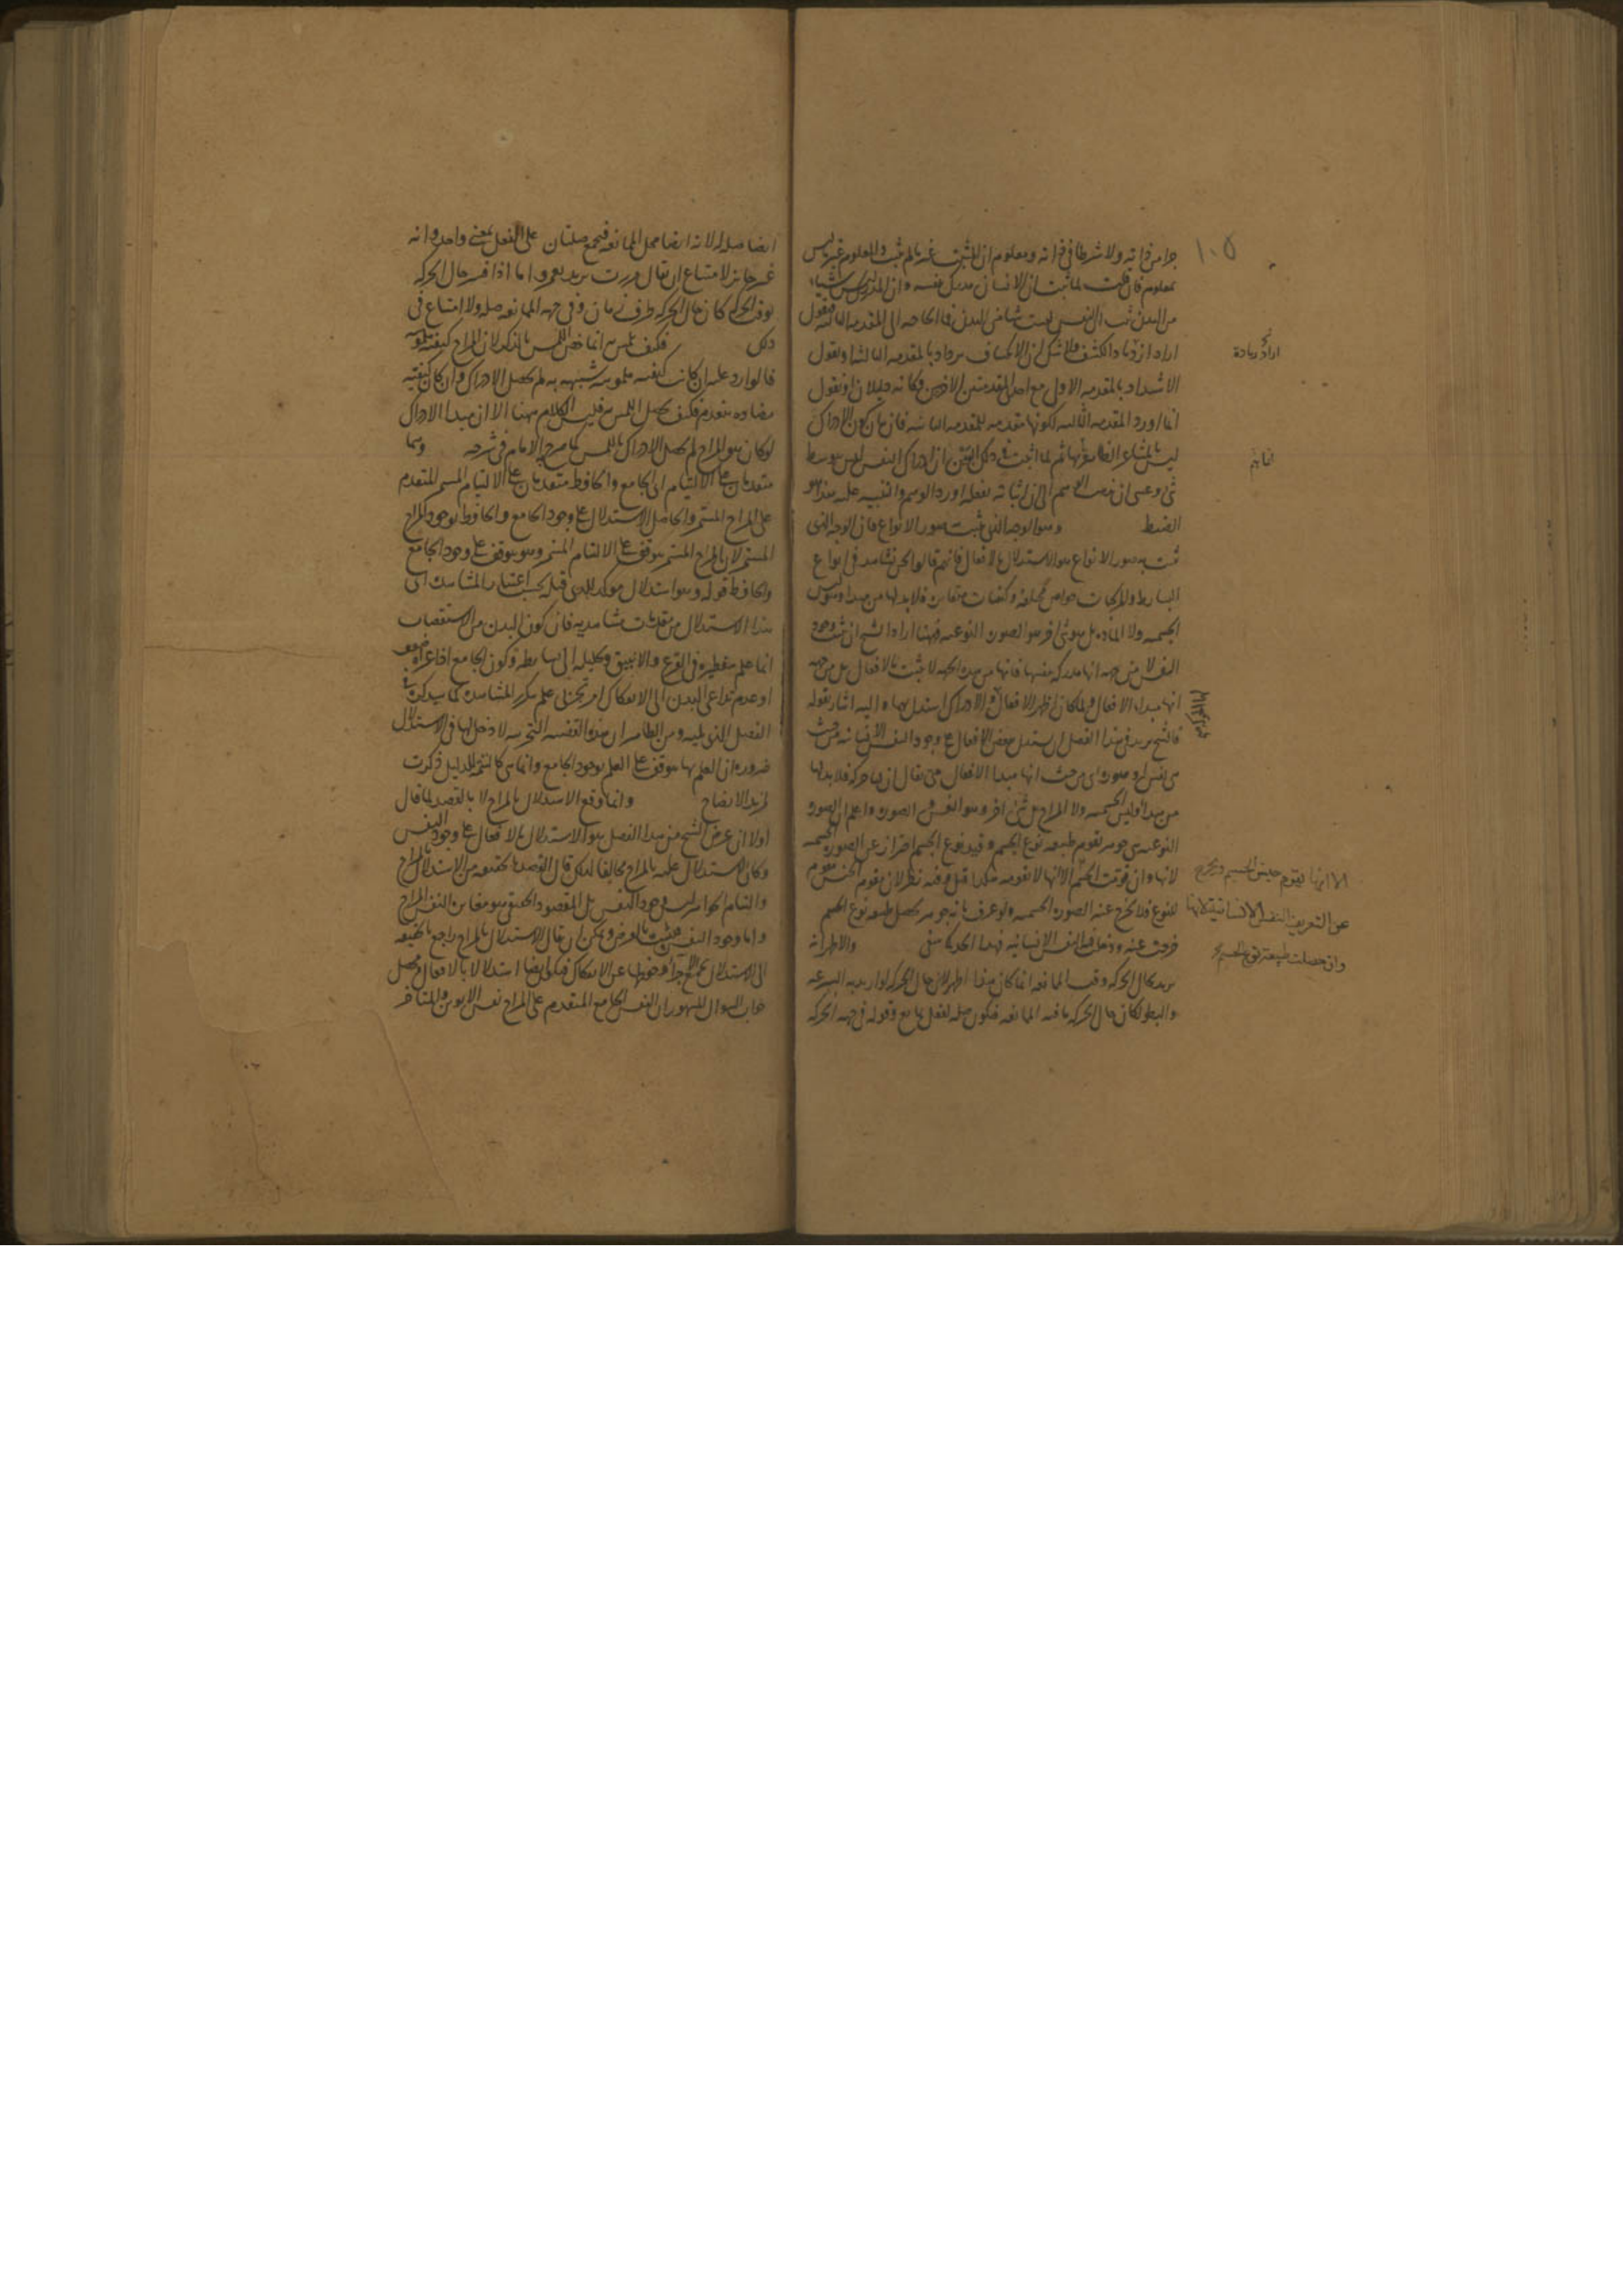 ١٠٥
جزا من ذاته ولا شرطا في ذاته ومعلوم ان المثبت غير ما لم يثبت والمعلوم غير ما ليس
بمعلوم فان قلت لما ثبت ان الانسان مدرك نفسه وان المدرك ليس شيئا
من البدن ثبت ان النفس ليست شيا من البدن فما الحاجة الى المقدمه الثالثه فنقول
اراد ازدياد الكشف ولا شك ان الانكشاف يزداد بالمقدمه الثالثه او نقول
الاستدلال بالمقدمه الاولى مع احدى المقدمتين الاخريين فكانه دليلان او نقول
انما اورد المقدمه الثالثه لكونها مقدمه للمقدمه
ليس بالمشاعر الظاهرة انما تم لما اثبت في ذلك ان ادراك النفس ليس بوسط
شئ وعسى ان يذهب الوهم الى اثباته بفعله اورد الوهم والتنبيه عليه هذا هو
الضبط وهو الوجه الذى يثبت صور الانواع فان الوجه الذى
ثبت به صور الانواع هو الاستدلال بالافعال فانهم قالوا نحن نشاهد في انواع
البسايط والمركبات خواص مختلفه وكيفيات متغايرة فلا بد لها من مبدا وليس
الجسمية ولا المادة بل هو شئ اخر هو الصورة النوعيه فههنا اراد الشيخ ان يثبت وجود
النفس لا من جهه انها مدركه بنفسها فانها من هذه الجهه لا تثبت بالافعال بل من جهه
انها مبداء الافعال ولما كان اظهر الافعال والادراك استدل بهما واليه اشار بقوله
فالشيخ يريد في هذا الفصل ان يستدل ببعض الافعال على وجود النفس الانسانيه من حيث
هى نفس او صورة اى من حيث انها مبدا الافعال حتى يقال ان لها حركة فلا بد لها
من مبدا وليس الجسميه ولا المزاج بل شئ اخر وهو النفس والصورة واعلم ان الصورة
النوعيه هى جوهر يقوم طبيعه نوع الجسم وقيد نوع الجسم احتراز عن الصورة الجسمية
لانها وان قومت الجسم الا انها لا تقومه هكذا قيل وفيه نظر لان مقوم الجنس مقوم
للنوع فلا يخرج عنه الصورة الجسميه ولو عرف بانه جوهر يحصل طبيعه نوع الجسم
خرجت عنه ودخلت النفس الانسانيه والاظهر انه
يريد بحال الحركه وقت الممانعه انما كان هذا اظهر لان حال الحركه لو اريد به السرعه
والبطو لكان حال الحركه ما فيه الممانعه فيكون صله لفعل مانع وقوله في جهه الحركه
اراد زيادة
انما يتم
الا انها لا تقوم جنس الجسم ويخرج
عن التعريف النفس الانسانية لانها
وان حصلت طبيعة نوع الجسم
ايضا صله له لانه ايضا محل الممانعه فيجمع صلتان على الفعل بمعنى واحد وانه
غير جايز لامتناع ان يقال مررت بزيد بعمرو اما اذا فسر حال الحركه
بوقت الحركة كان حال الحركه ظرف زمان وفى جهه الممانعه صله ولا امتناع فى
ذلك فكيف يلمس به انما خص اللمس بالذكر لان المزاج كيفيه ملموسه
فالوارد عليه ان كانت كيفيه ملموسه شبيهه به لم يحصل الادراك وان كان كيفيه
مضاده ينعدم فكيف يحصل اللمس به فليس الكلام ههنا الا ان مبدا الادراك
لو كان هو المزاج لم يحصل الادراك باللمس كما صرح به الامام فى شرحه وهما
متقدمان على الالتيام اى الجامع والحافظ متقدمان على الالتيام المستمر المتقدم
على المزاج المستمر والحاصل الاستدلال على وجود الجامع والحافظ بوجود المزاج
المستمر لان المزاج المستمر موقوف على الالتيام المستمر وهو موقوف على وجود الجامع
والحافظ قوله وهو استدلال موكد للذى قبله بحسب اعتبار المشاهدة اى
هذا الاستدلال من مقدمات مشاهديه فان كون البدن من الاستقصات
انما علم بتقطيره فى القرع والانبيق وتحليله الى بسايطه وكون الجامع اذا عراه ضعف
او عدم تداعى البدن الى الانفكاك امر تجربى علم بتكرر المشاهده كما سيذكره فى
الفصل الذى يليه ومن الظاهر ان هذه القضيه التجربيه لا دخل لها فى الاستدلال
ضرورة ان العلم بها موقوف على العلم بوجود الجامع وانما هى كالتتمه للدليل ذكرت
لمزيد الايضاح وانما وقع الاستدلال بالمزاج لا بالقصد لما قال
اولا ان غرض الشيخ من هذا الفصل هو الاستدلال بالافعال على وجود النفس
وكان الاستدلال عليه بالمزاج مخالفا لذلك قال القصد بالحقيقه من الاستدلال بالمزاج
والتيام الحواس ليس وجود النفس بل المقصود الحقيقى هو مغايرة النفس المزاج
واما وجود النفس فيثبت بالعرض ويمكن ان يقال الاستدلال بالمزاج راجع بالحقيقه
الى الاستدلال بجمع الاجزا وحفظها عن الانفكاك فيكون ايضا استدلالا بالافعال ومحصل
جواب السوال المشهور ان النفس الجامع المتقدم على المزاج نفس الابوين والمتاخر